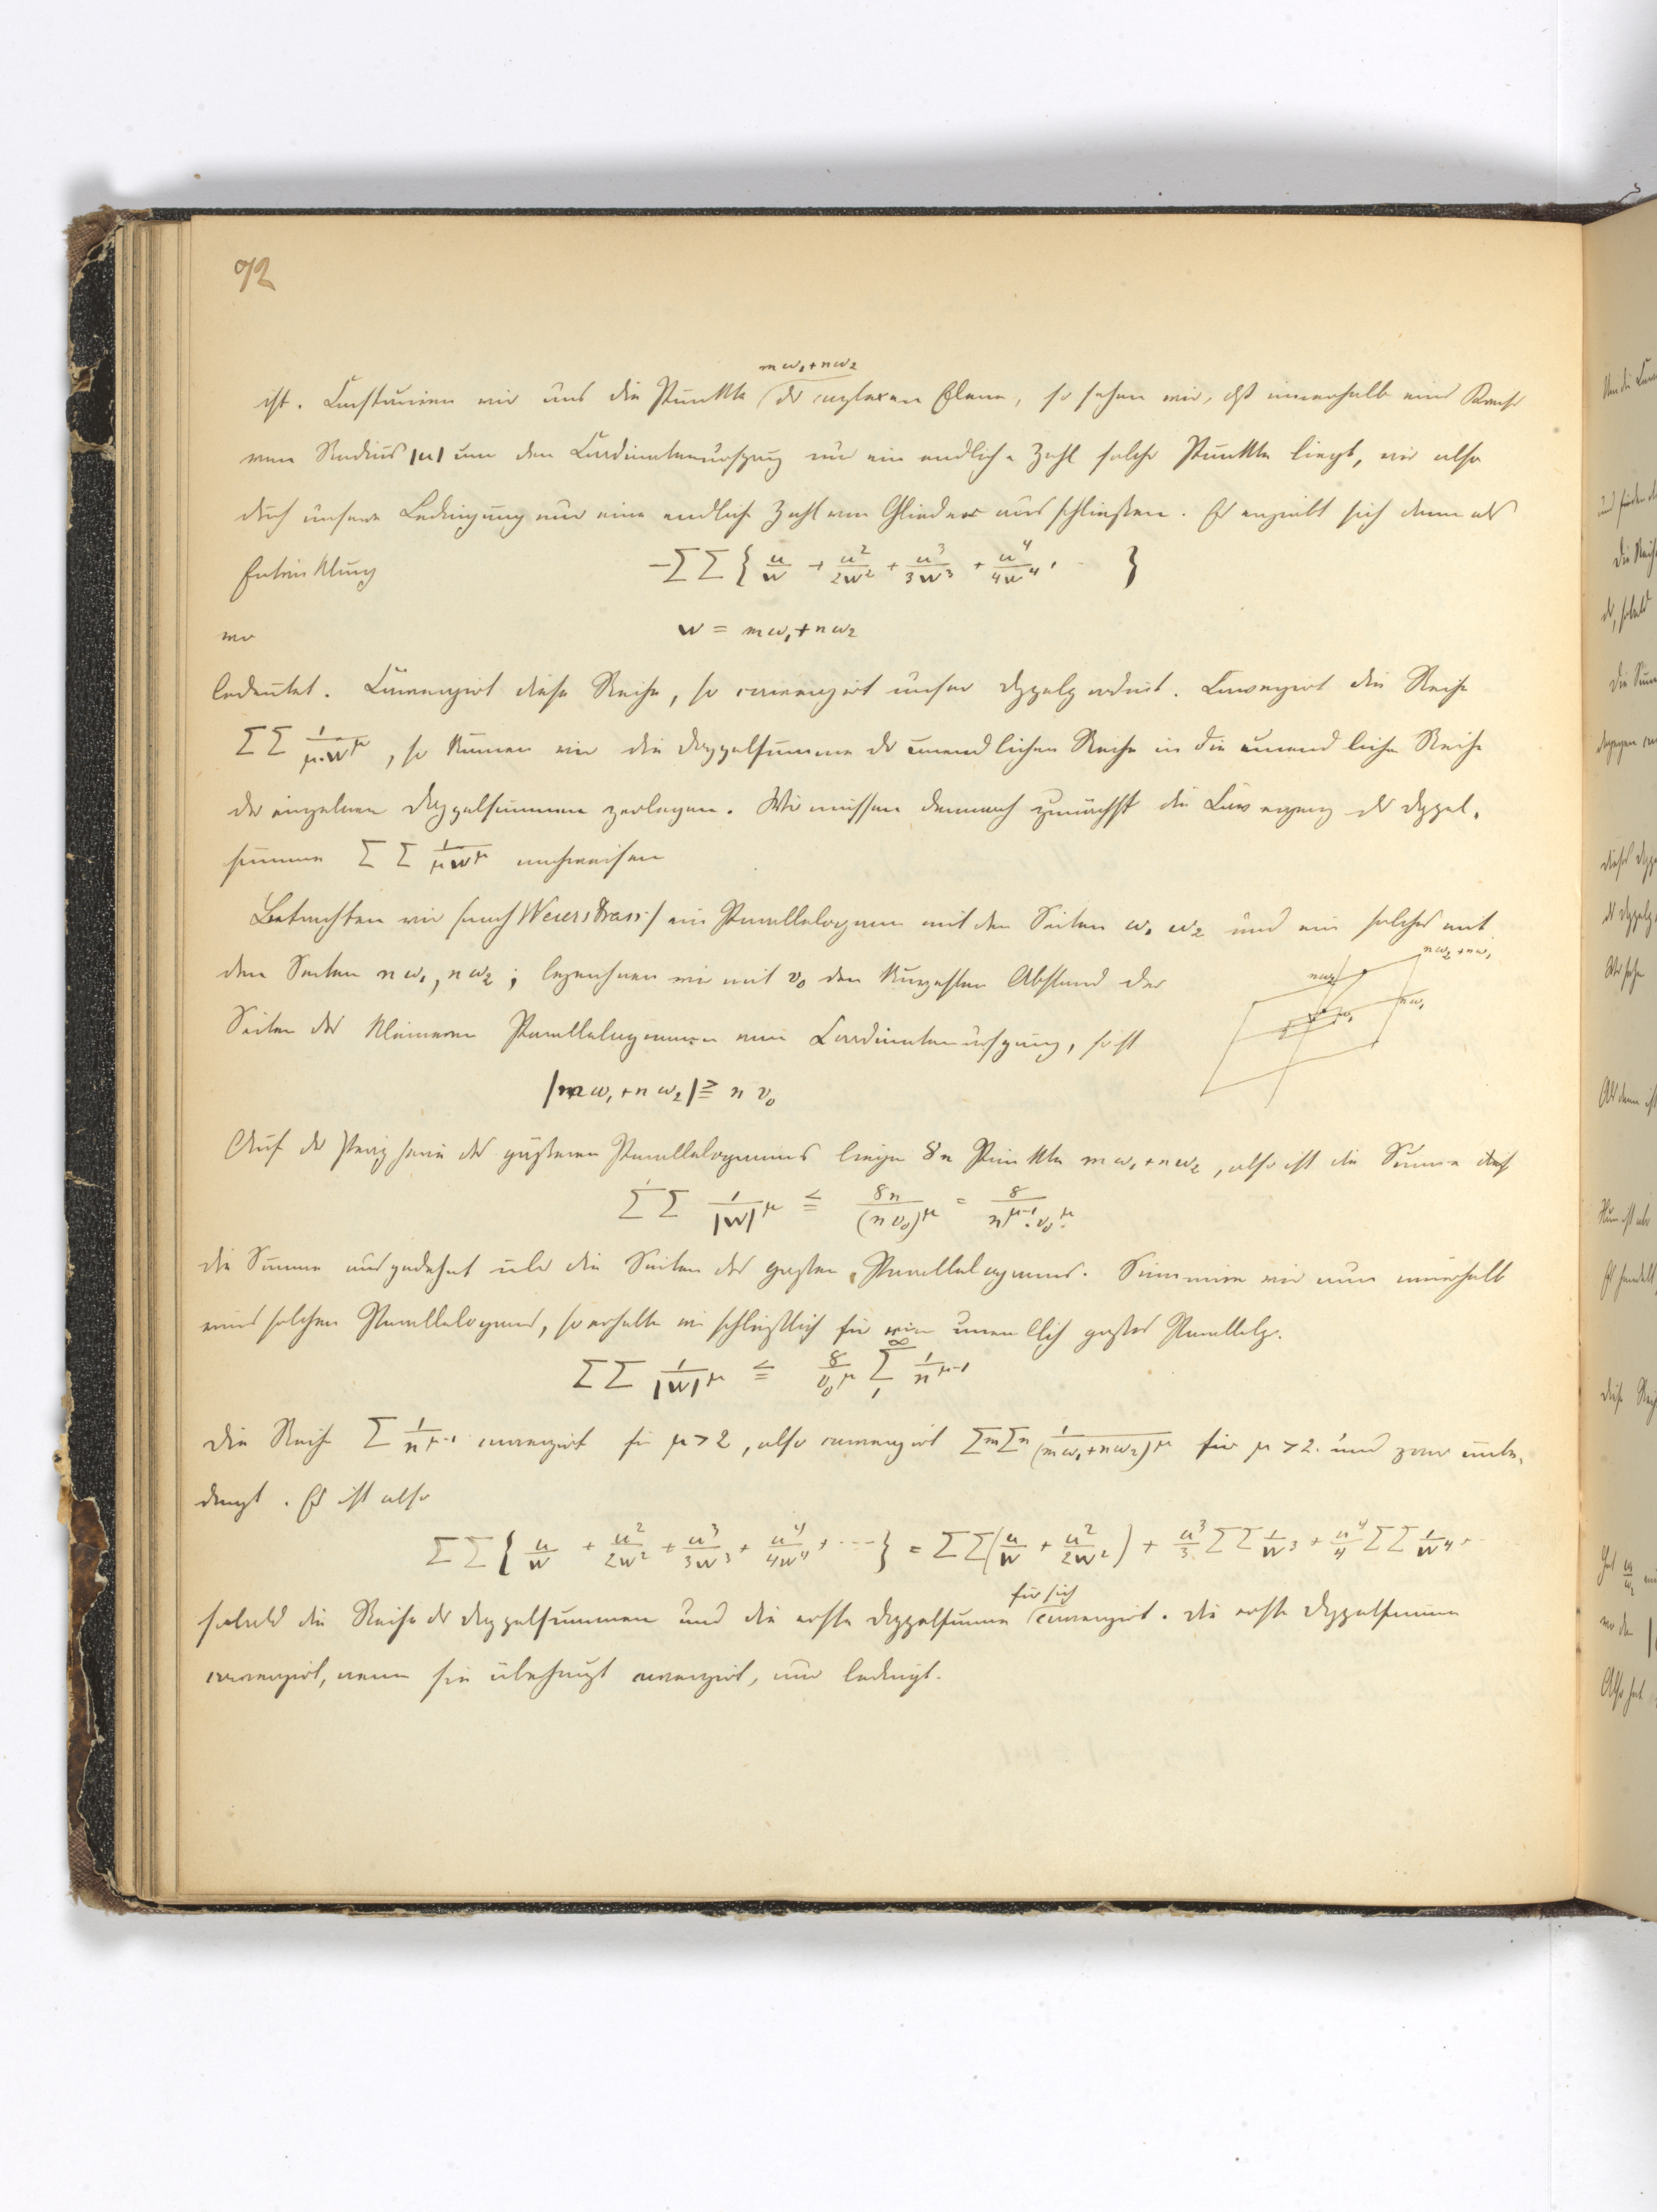 92
mω₁+nω₂
ist. Construiren wir uns die Punkte der complexen Ebene, so sehen wir, dß innerhalb eines Kreises
vom Radius |u| um den Coordinatenursprung nur eine endliche Zahl solcher Punkte liegt, wir also
durch unsere Bedingung nur eine endliche Zahl von Gliedern ausschließen. Es ergiebt sich dann als
Entwicklung −∑∑{u/w + u²/2w² + u³/3w³ + u⁴/4w⁴ + ⋯}
wo w = mω₁+nω₂
bedeutet. Convergirt diese Reihe, so convergirt unser Doppelproduct. Convergirt die Reihe
∑∑ 1/μ·w^μ, so können wir die Doppelsumme der unendlichen Reihe in die unendliche Reihe
der einzelnen Doppelsummen zerlegen. Wir müssen demnach zunächst die Convergenz der Doppel-
summe ∑∑ 1/μw^μ nachweisen
Betrachten wir (nach Weierstrass) ein Parallelogramm mit den Seiten ω₁ ω₂ und ein solches mit
den Seiten nω₁, nω₂; bezeichnen wir mit v₀ den kürzesten Abstand der
nω₂+nω₁
nω₂
nω₁
ω₁
Seiten des kleineren Parallelogramms vom Coordinatenursprung, so ist
|mω₁+nω₂| ≧ n v₀
Auf der Peripherie des größeren Parallelogramms liegen 8n Punkte mω₁+nω₂, also ist die Summe
∑'∑ 1/|w|^μ ≦ 8n/(n v₀)^μ = 8/n^{μ-1}·v₀^μ
die Summe ausgedehnt über die Seiten des großen Parallelogramms. Summiren wir nun innerhalb
eines solchen Parallelogramms, so erhalten wir schließlich für ein unendlich großes Parallelg.
∑∑ 1/|w|^μ ≦ 8/v₀^μ ∑₁^∞ 1/n^{μ-1}
Die Reihe ∑ 1/n^{μ-1} convergirt für μ>2, also convergirt ∑m∑n 1/(mω₁+nω₂)^μ für μ>2. und zwar unbe-
dingt. Es ist also
∑∑{u/w + u²/2w² + u³/3w³ + u⁴/4w⁴ + ⋯} = ∑∑(u/w + u²/2w²) + u³/3 ∑∑ 1/w³ + u⁴/4 ∑∑ 1/w⁴ + ⋯
für sich
sobald die Reihe der Doppelsummen und die erste Doppelsumme convergirt. Die erste Doppelsumme
convergirt, wenn sie überhaupt convergirt, nur bedingt.